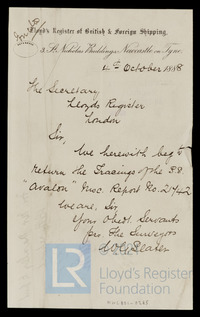 Lloyd's Register of British & Foreign Shipping.
3, St. Nicholas Buildings, Newcastle on Tyne,
4th October 1888
The Secretary,
Lloyds Register
London
Sir,
We herewith beg to
return the Tracings of the S.S.
"Avalon" Misc. Report No. 2742
We are, Sir
Your Obedt. Servants
pro. The Surveyors
LR
Lloyd's Register
Foundation